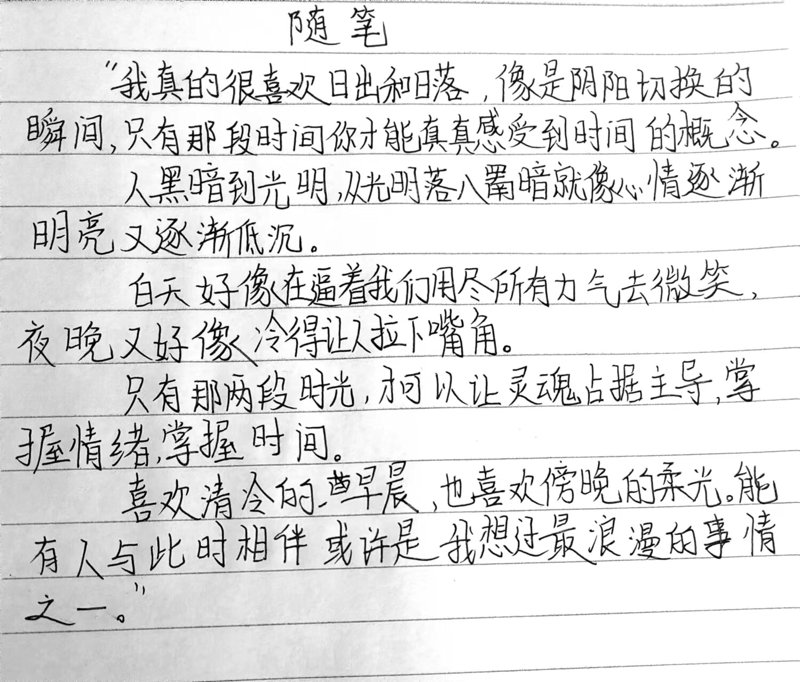 随笔
“我真的很喜欢日出和日落，像是阴阳切换的
瞬间，只有那段时间你才能真真感受到时间的概念。
人黑暗到光明，从光明落八黑暗就像心情逐渐
明亮又逐渐低沉。
白天好像在逼着我们用尽所有力气去微笑，
夜晚又好像冷得让人拉下嘴角。
只有那两段时光，才可以让灵魂占据主导，掌
握情绪，掌握时间。
喜欢清冷的早晨，也喜欢傍晚的柔光。能
有人与此时相伴或许是我想过最浪漫的事情
之一。”